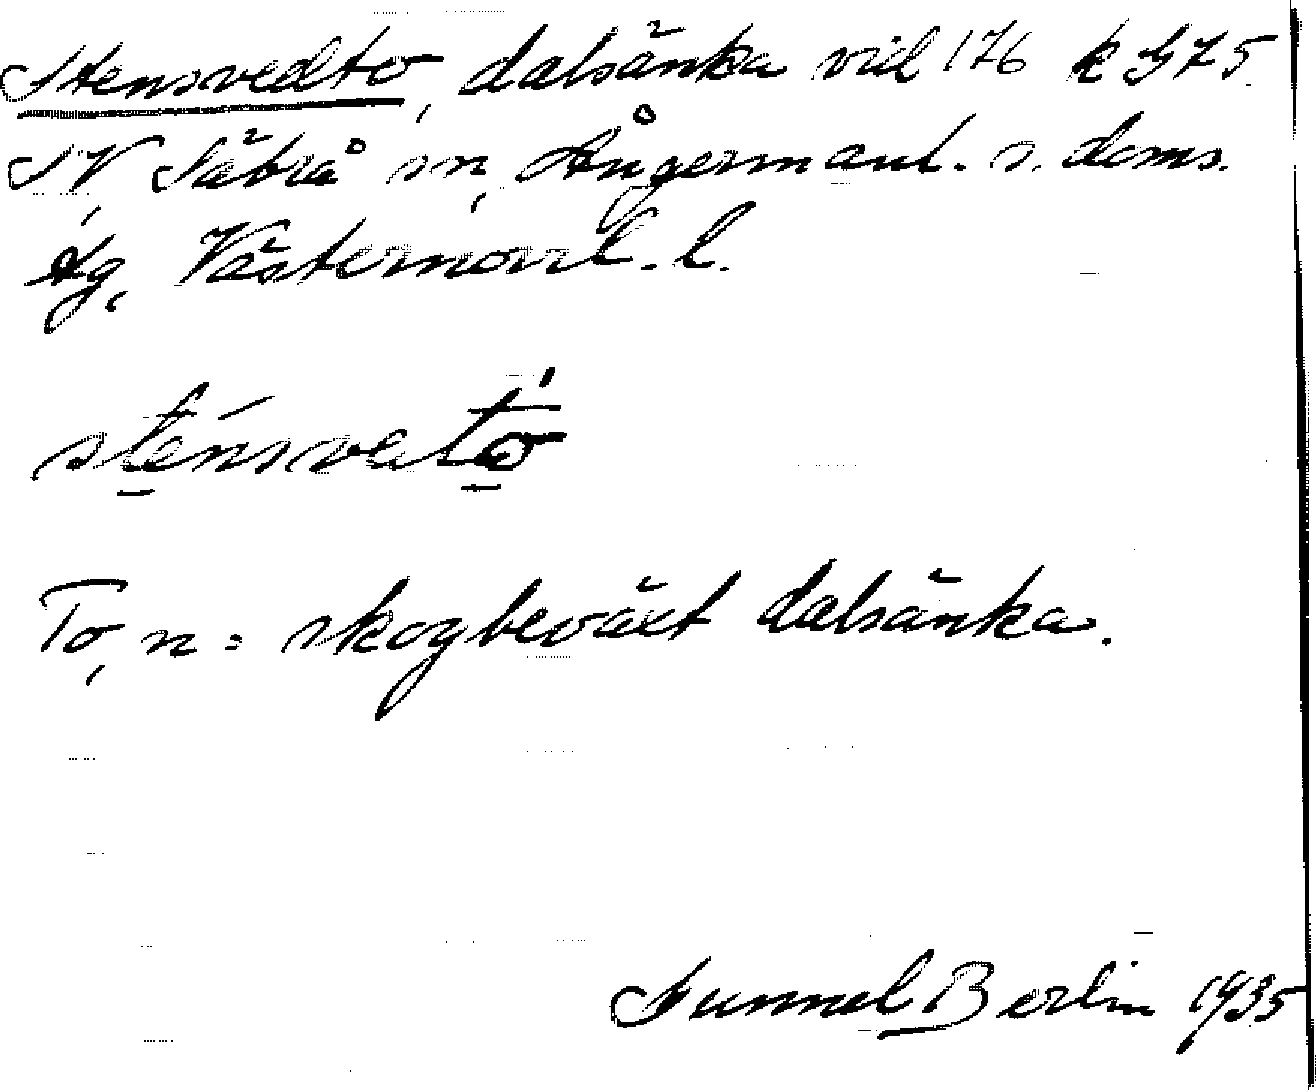 Stensvedto, dalsänka vid 176 k G 75
SV Säbrå sn, Ångermanl. s. doms.
lg, Västernorrl. l.
sténsvetó
To, n = skogbeväxt dalsänka.
Gunnel Berlin 1935